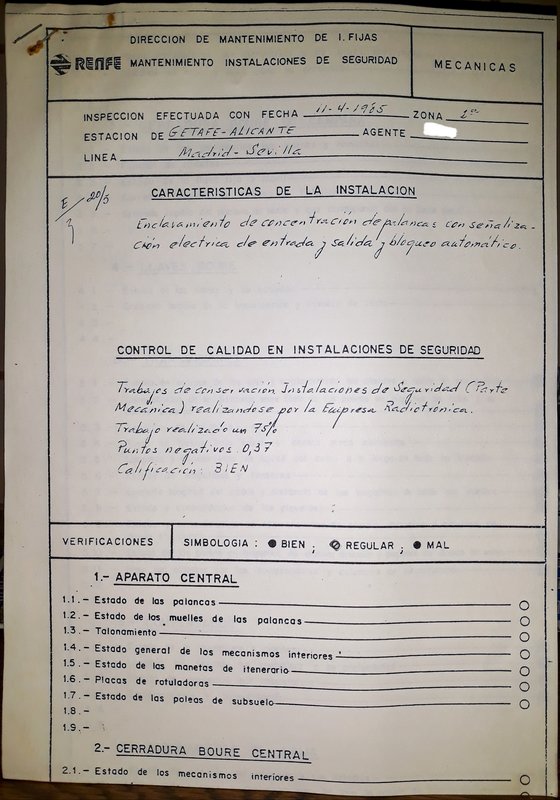 DIRECCION DE MANTENIMIENTO DE I. FIJAS
RENFE MANTENIMIENTO INSTALACIONES DE SEGURIDAD
MECANICAS
INSPECCION EFECTUADA CON FECHA 11-4-1985 ZONA 2ª
ESTACION DE GETAFE-ALICANTE AGENTE
LINEA Madrid-Sevilla
E/3 20/5
CARACTERISTICAS DE LA INSTALACION
Enclavamiento de concentración de palancas con señaliza-
ción electrica de entrada y salida y bloqueo automático.
CONTROL DE CALIDAD EN INSTALACIONES DE SEGURIDAD
Trabajos de conservación Instalaciones de Seguridad (Parte
Mecánica) realizandose por la Empresa Radiotrónica.
Trabajo realizado un 75%
Puntos negativos 0,37
Calificación: BIEN
VERIFICACIONES
SIMBOLOGIA : BIEN ; REGULAR ; MAL
1.- APARATO CENTRAL
1.1.- Estado de las palancas
1.2.- Estado de los muelles de las palancas
1.3.- Talonamiento
1.4.- Estado general de los mecanismos interiores
1.5.- Estado de las manetas de itenerario
1.6.- Placas de rotuladoras
1.7.- Estado de las poleas de subsuelo
1.8.-
1.9.-
2.- CERRADURA BOURE CENTRAL
2.1.- Estado de los mecanismos interiores